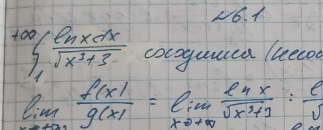 №6.1
+∞ ∫ 1 ln x dx / √(x³+3) сходится
lim f(x)/g(x) = lim x→+∞ ln x / √(x³+3) :